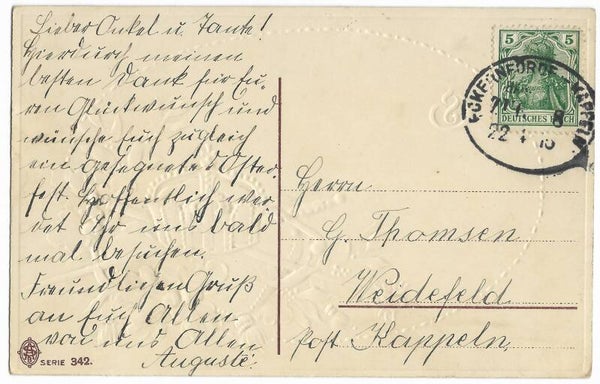 Lieber Onkel u. Tante!
Hierdurch meinen
besten Dank für Eu-
ren Glückwunsch und
wünsche Euch zugleich
ein gesegnetes Oster-
fest. Hoffentlich wer-
det Ihr uns bald
mal besuchen.
Freundlichen Gruß
an Euch Allen
von uns Allen
Auguste.
SERIE 342.
5 5
DEUTSCHES REICH
ECKERNFÖRDE - KAPPELN
22 4
Herrn
G. Thomsen
Weidefeld
Post Kappeln.